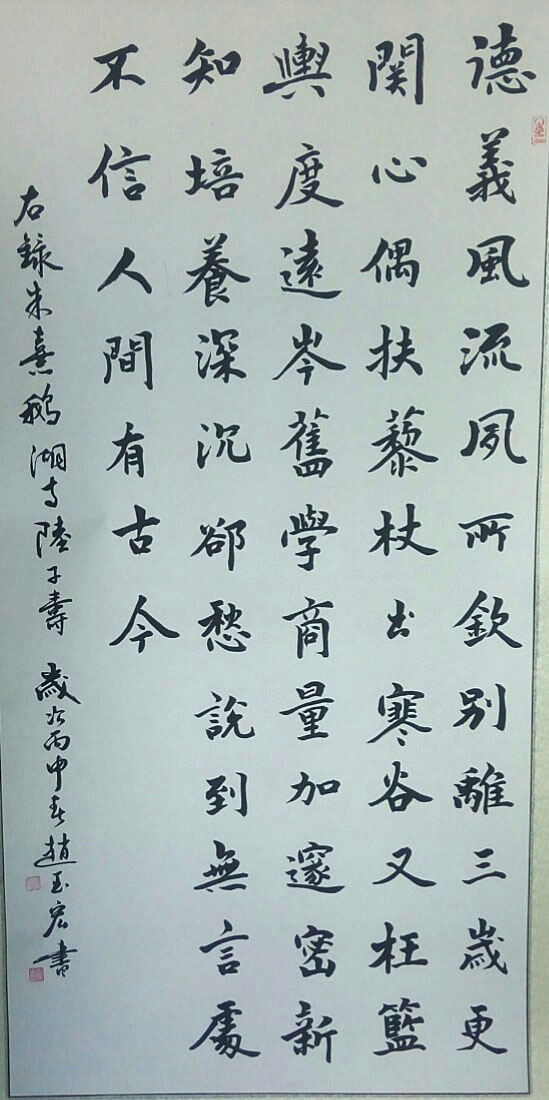 德義風流夙所欽別離三歲更
関心偶扶藜杖出寒谷又枉籃
輿度遠岑舊學商量加邃密新
知培養深沉卻愁說到無言處
不信人間有古今
右録朱熹鵝湖寺陸子壽 歲次丙申春趙玉宏書